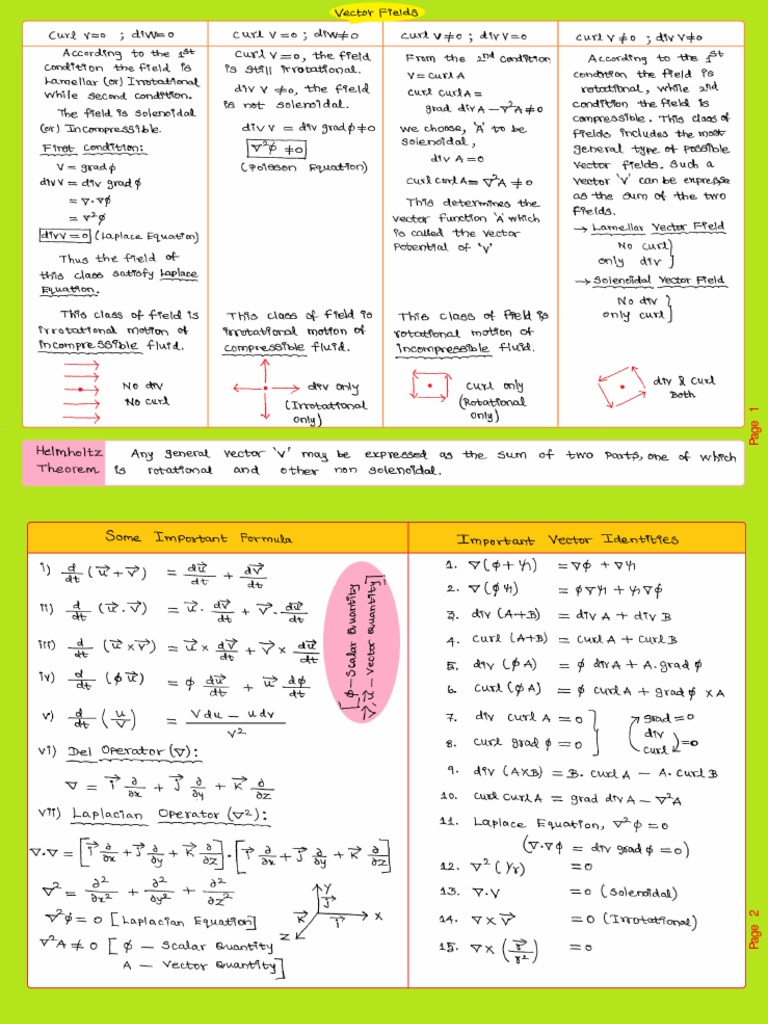 Vector Fields
curl v=0 ; div v=0
According to the 1st
condition the field is
Lamellar (or) Irrotational
while second condition.
The field is solenoidal
(or) Incompressible.
First condition:
V = grad ϕ
div v = div grad ϕ
= ∇·∇ϕ
= ∇²ϕ
div v = 0 (Laplace Equation)
Thus the field of
this class satisfy Laplace
Equation.
This class of field is
irrotational motion of
incompressible fluid.
No div
No curl
curl v=0 ; div v≠0
curl v=0, the field
is still irrotational.
div v≠0, the field
is not solenoidal.
div v = div grad ϕ ≠0
∇²ϕ ≠0
(Poisson Equation)
This class of field is
irrotational motion of
compressible fluid.
div only
(Irrotational
only)
curl v≠0 ; div v=0
From the 2nd condition
V = curl A
curl curl A =
grad div A − ∇²A ≠0
we choose, 'A' to be
solenoidal,
div A = 0
curl curl A = ∇²A ≠0
This determines the
vector function 'A' which
is called the vector
Potential of 'V'
This class of field is
rotational motion of
Incompressible fluid.
curl only
(Rotational
only)
curl v≠0 ; div v≠0
According to the 1st
condition the field is
rotational, while 2nd
condition the field is
compressible. This class of
fields includes the most
general type of possible
vector fields. Such a
vector 'V' can be expresse
as the sum of the two
fields.
→ Lamellar Vector Field
No curl
only div }
→ Solenoidal Vector Field
No div
only curl }
div & curl
Both
Page 1
Helmholtz
Theorem
Any general vector 'V' may be expressed as the sum of two parts, one of which
is rotational and other non solenoidal.
Some Important Formula
i) d/dt (u⃗ + v⃗) = du⃗/dt + dv⃗/dt
ii) d/dt (u⃗ · v⃗) = u⃗ · dv⃗/dt + v⃗ · du⃗/dt
iii) d/dt (u⃗ × v⃗) = u⃗ × dv⃗/dt + v⃗ × du⃗/dt
iv) d/dt (ϕ u⃗) = ϕ du⃗/dt + u⃗ dϕ/dt
v) d/dt (u/v) = (Vdu − udv)/v²
[ϕ − Scalar Quantity
v⃗, u⃗ − Vector Quantity]
vi) Del Operator (∇):
∇ = i⃗ ∂/∂x + j⃗ ∂/∂y + k⃗ ∂/∂z
vii) Laplacian Operator (∇²):
∇·∇ = [i⃗ ∂/∂x + j⃗ ∂/∂y + k⃗ ∂/∂z] · [i⃗ ∂/∂x + j⃗ ∂/∂y + k⃗ ∂/∂z]
∇² = ∂²/∂x² + ∂²/∂y² + ∂²/∂z²
∇²ϕ = 0 [Laplacian Equation]
∇²A ≠ 0 [ϕ − Scalar Quantity
A − Vector Quantity]
Y
j⃗
k⃗
i⃗
X
Z
Important Vector Identities
1. ∇(ϕ + ψ) = ∇ϕ + ∇ψ
2. ∇(ϕ ψ) = ϕ∇ψ + ψ∇ϕ
3. div (A+B) = div A + div B
4. curl (A+B) = curl A + curl B
5. div (ϕ A) = ϕ div A + A. grad ϕ
6. curl (ϕ A) = ϕ curl A + grad ϕ × A
7. div curl A = 0
8. curl grad ϕ = 0
grad = 0
div
curl = 0
9. div (A×B) = B. curl A − A. curl B
10. curl curl A = grad div A − ∇²A
11. Laplace Equation, ∇²ϕ = 0
(∇·∇ϕ = div grad ϕ = 0)
12. ∇²(1/r) = 0
13. ∇·V = 0 (Solenoidal)
14. ∇ × V⃗ = 0 (Irrotational)
15. ∇ × (r⃗/r²) = 0
Page 2